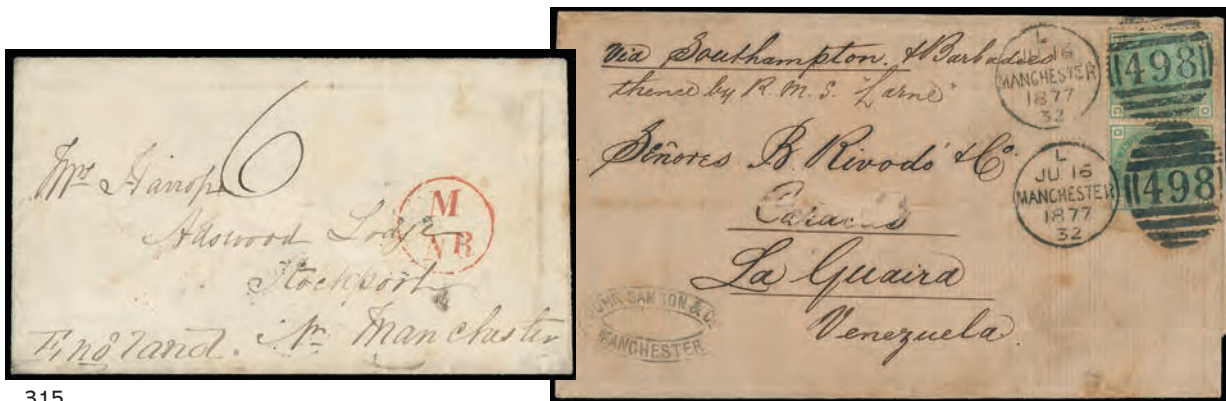 Mrs Harrop
6
Adswood Lodge
Stockport
Nr Manchester
England.
M
NR
315
Via Southampton. & Barbadoes
thence by R. M. S. "Larne"
Señores B. Rivodó & Co.
Caracas
La Guaira
Venezuela
L
JU 16
MANCHESTER
1877
32
498
L
JU 16
MANCHESTER
1877
32
498
JOHN SAMSON & Co
MANCHESTER